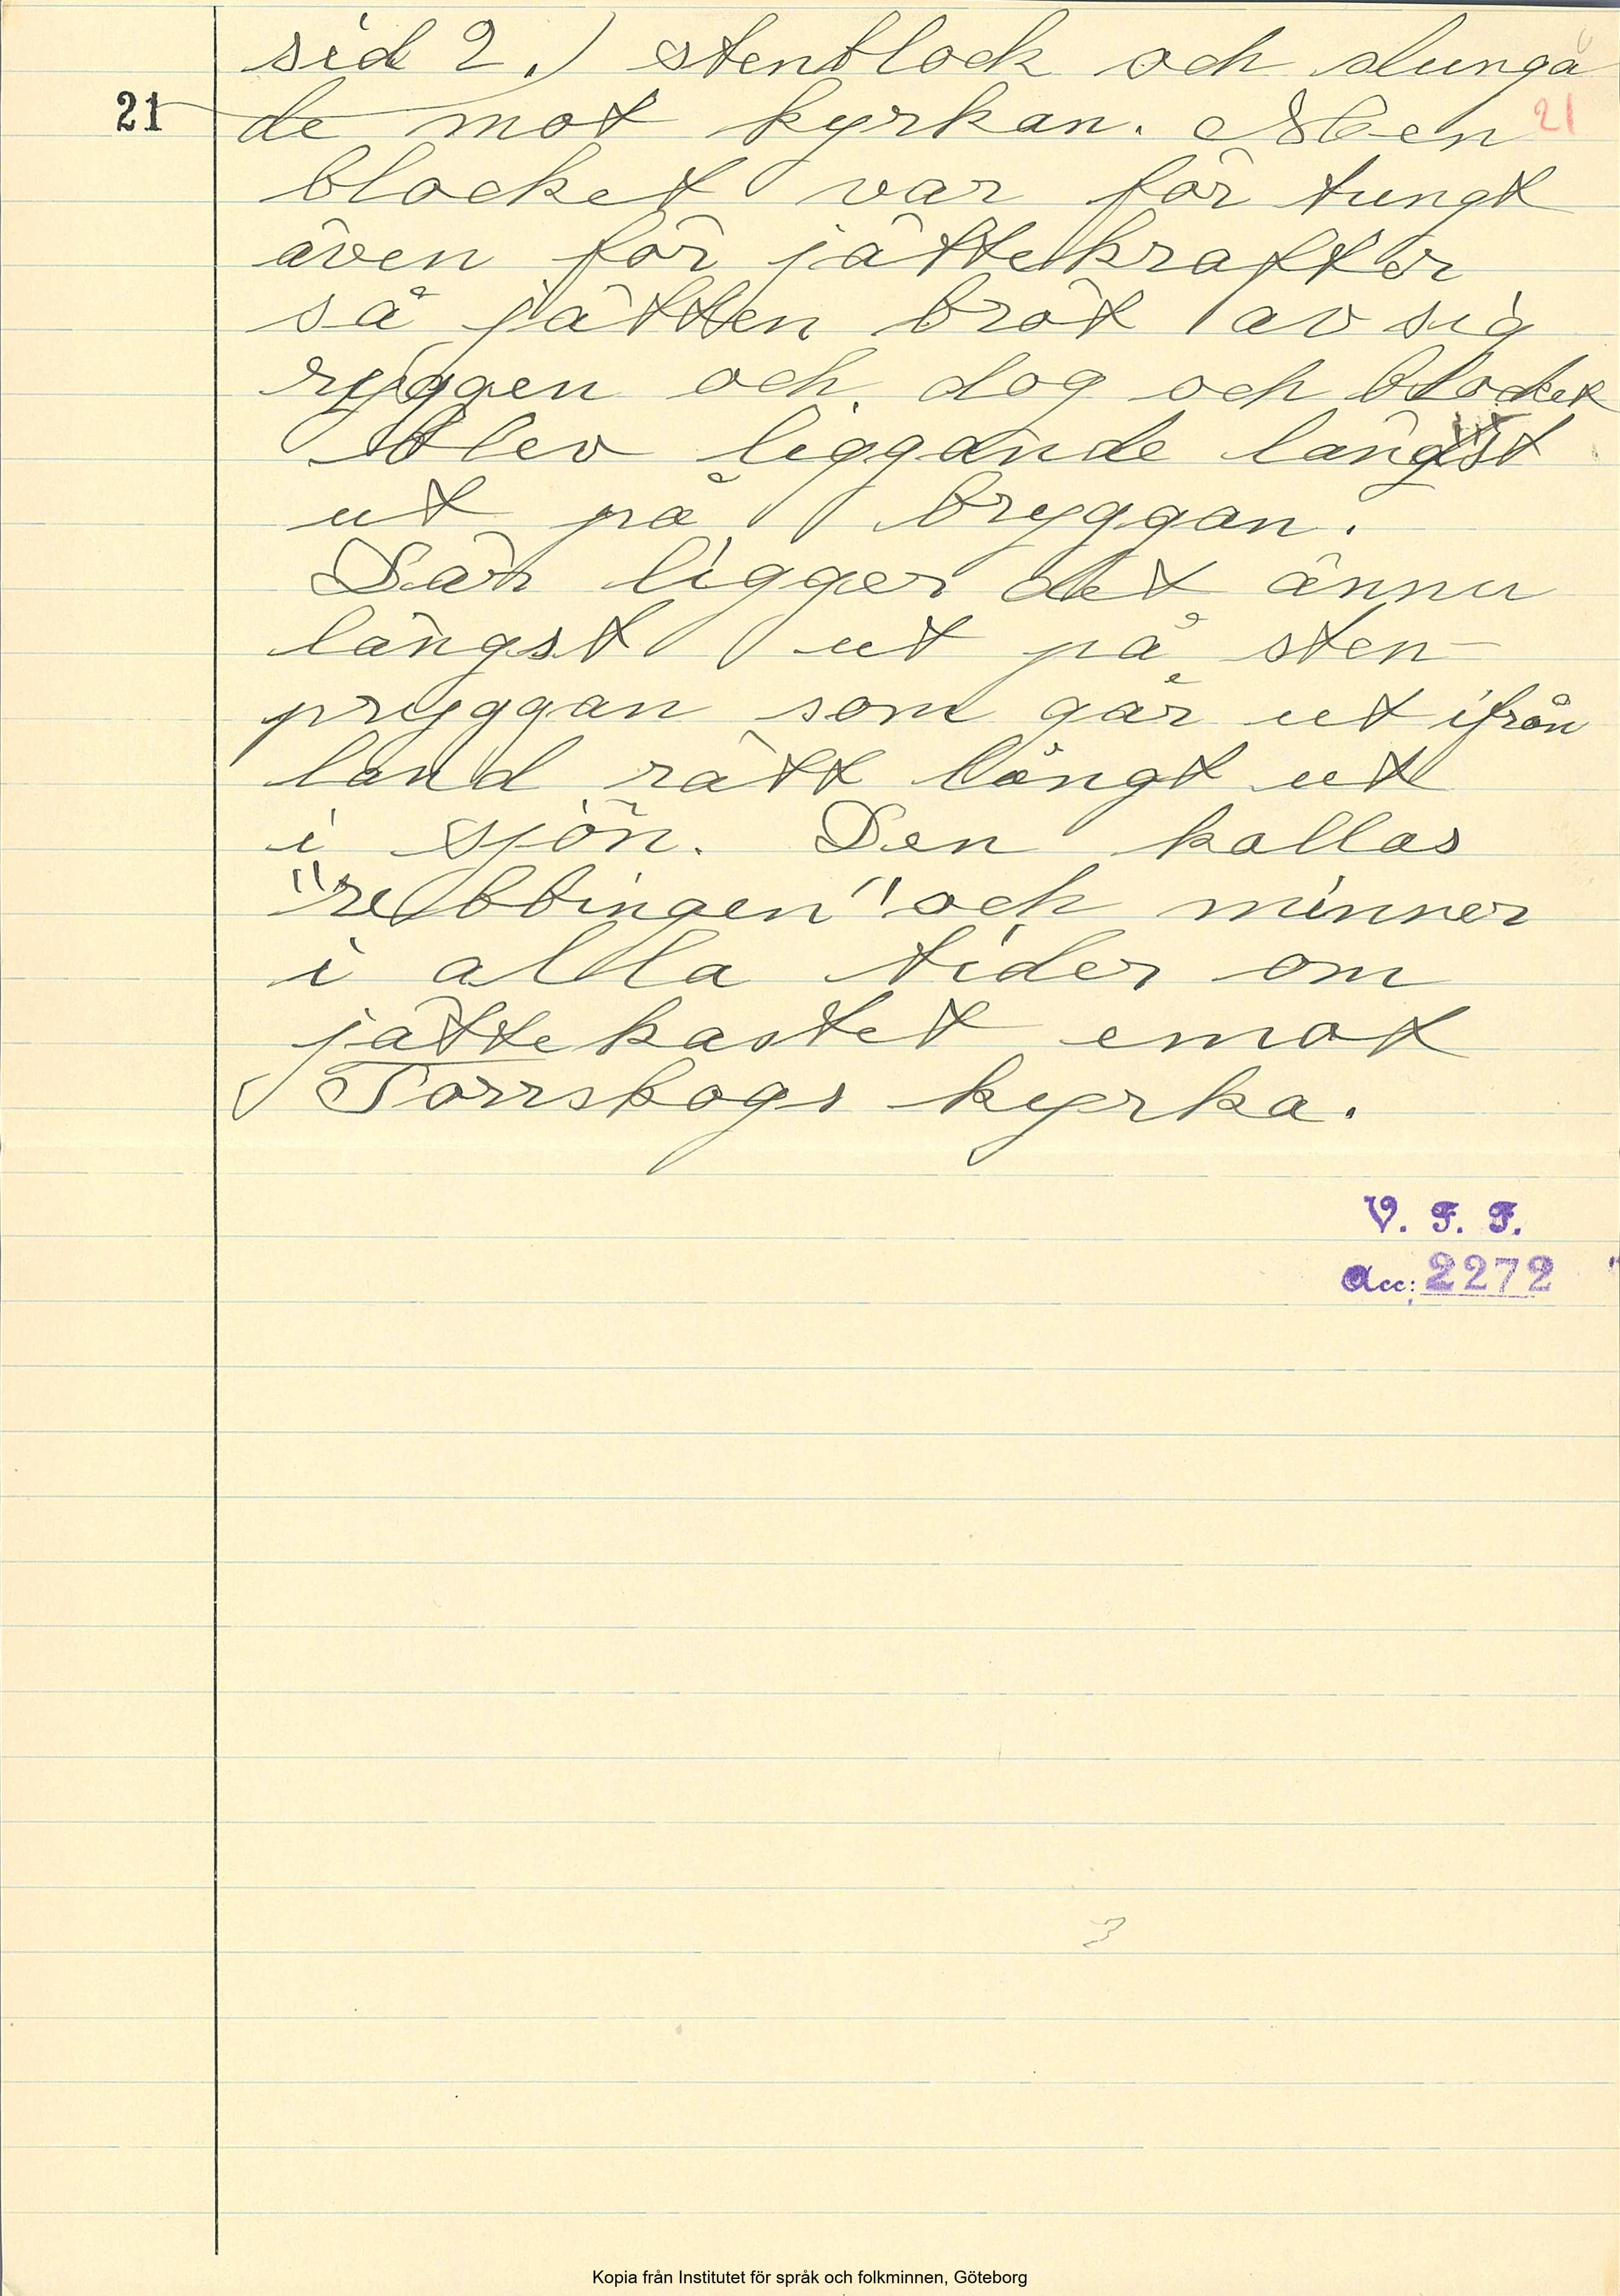 sid 2.) stenblock och slunga
21 de mot kyrkan. Men 21
blocket var för tungt
även för jättekrafter
så jätten bröt av sig
ryggen och dog och blocket
blev liggande längst
ut på bryggan.
Där ligger det ännu
längst ut på sten-
pryggan som går ut ifrån
land rätt långt ut
i sjön. Den kallas
"rebbingen" och minner
i alla tider om
jättekastet emot
Torrskogs kyrka.
V. F. F.
Acc: 2272
3
Kopia från Institutet för språk och folkminnen, Göteborg